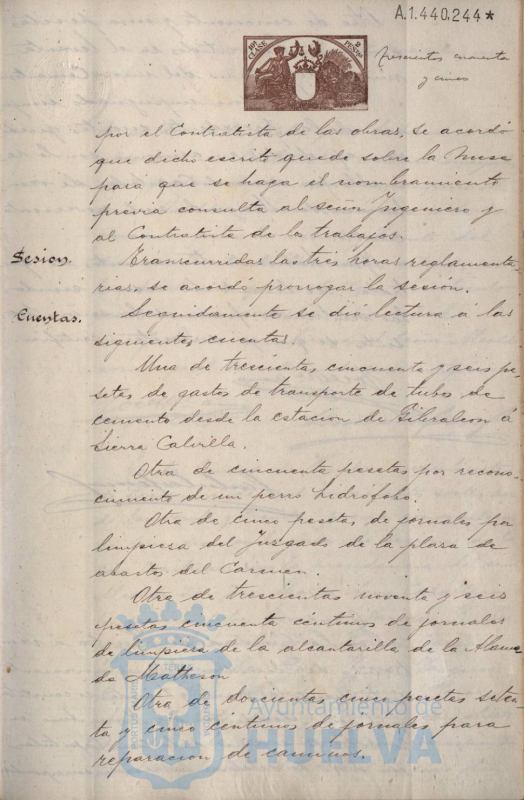 A.1.440.244*
10ª CLASE
2 PESETAS
Trescientos cuarenta
y cinco
por el Contratista de las obras, se acordó
que dicho escrito quede sobre la Mesa
para que se haga el nombramiento
prévia consulta al señor Ingeniero y
al Contratista de los trabajos.
Sesion.
Transcurridas las tres horas reglamenta-
rias, se acordó prorrogar la sesion.
Cuentas.
Seguidamente se dió lectura á las
siguientes cuentas.
Una de trescientas cincuenta y seis pe-
setas de gastos de transporte de tubos de
cemento desde la estacion de Gibraleon á
Sierra Calvilla.
Otra de cincuenta pesetas por recono-
cimiento de un perro hidrófobo.
Otra de cinco pesetas de jornales por
limpiesa del Juzgado de la plaza de
abastos del Carmen.
Otra de trescientas noventa y seis
pesetas cincuenta céntimos de jornales
de limpiesa de la alcantarilla de la Alame-
da Matheson
Otra de doscientas cinco pesetas seten-
ta y cinco centimos de jornales para
reparacion de caminos.
Ayuntamiento de
HUELVA